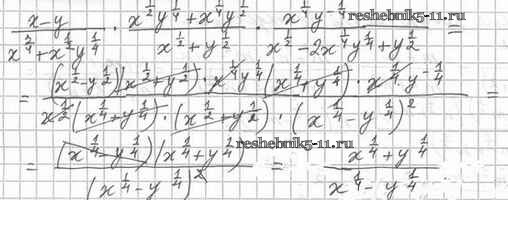 (x-y)/(x^(3/4)+x^(1/2)y^(1/4)) · (x^(1/2)y^(1/4)+x^(1/4)y^(1/2))/(x^(1/2)+y^(1/2)) · (x^(1/4)y^(-1/4))/(x^(1/2)-2x^(1/4)y^(1/4)+y^(1/2)) =
reshebniki-okey.com
= ((x^(1/2)-y^(1/2))(x^(1/2)+y^(1/2)) · x^(1/4)y^(1/4)(x^(1/4)+y^(1/4)) · x^(1/4) · y^(-1/4))/(x^(1/2)(x^(1/4)+y^(1/4)) · (x^(1/2)+y^(1/2)) · (x^(1/4)-y^(1/4))^2) =
= ((x^(1/4)-y^(1/4))(x^(1/4)+y^(1/4)))/((x^(1/4)-y^(1/4))^2) = (x^(1/4)+y^(1/4))/(x^(1/4)-y^(1/4))
reshebniki-okey.com